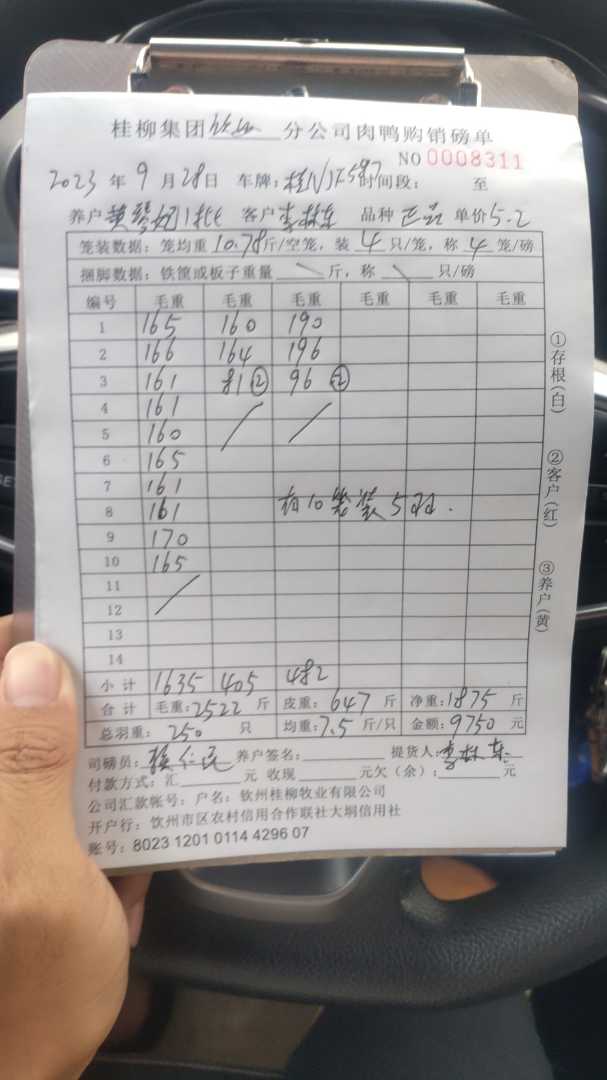 桂柳集团钦州分公司肉鸭购销磅单
NO 0008311
2023 年 9 月 28 日 车牌: 桂NJF587 时间段: 至
养户 黄琴妃1批 客户 李林东 品种 正品 单价 5.2
笼装数据: 笼均重 10.78 斤/空笼, 装 4 只/笼, 称 4 笼/磅
捆脚数据: 铁筐或板子重量 斤, 称 只/磅
编号 毛重 毛重 毛重 毛重 毛重 毛重
1 165 160 190
2 166 164 196
3 161 81② 96②
4 161
5 160
6 165
7 161
8 161 有10笼装5羽.
9 170
10 165
11
12
13
14
小计 1635 405 482
合计 毛重: 2522 斤 皮重: 647 斤 净重: 1875 斤
总羽重: 250 只 均重: 7.5 斤/只 金额: 9750 元
司磅员: 仁民 养户签名: 提货人: 李林东
付款方式: 汇 元 收现 元欠(余): 元
公司汇款帐号: 户名: 钦州桂柳牧业有限公司
开户行: 钦州市区农村信用合作联社大垌信用社
账号: 8023 1201 0114 4296 07
①存根(白)
②客户(红)
③养户(黄)